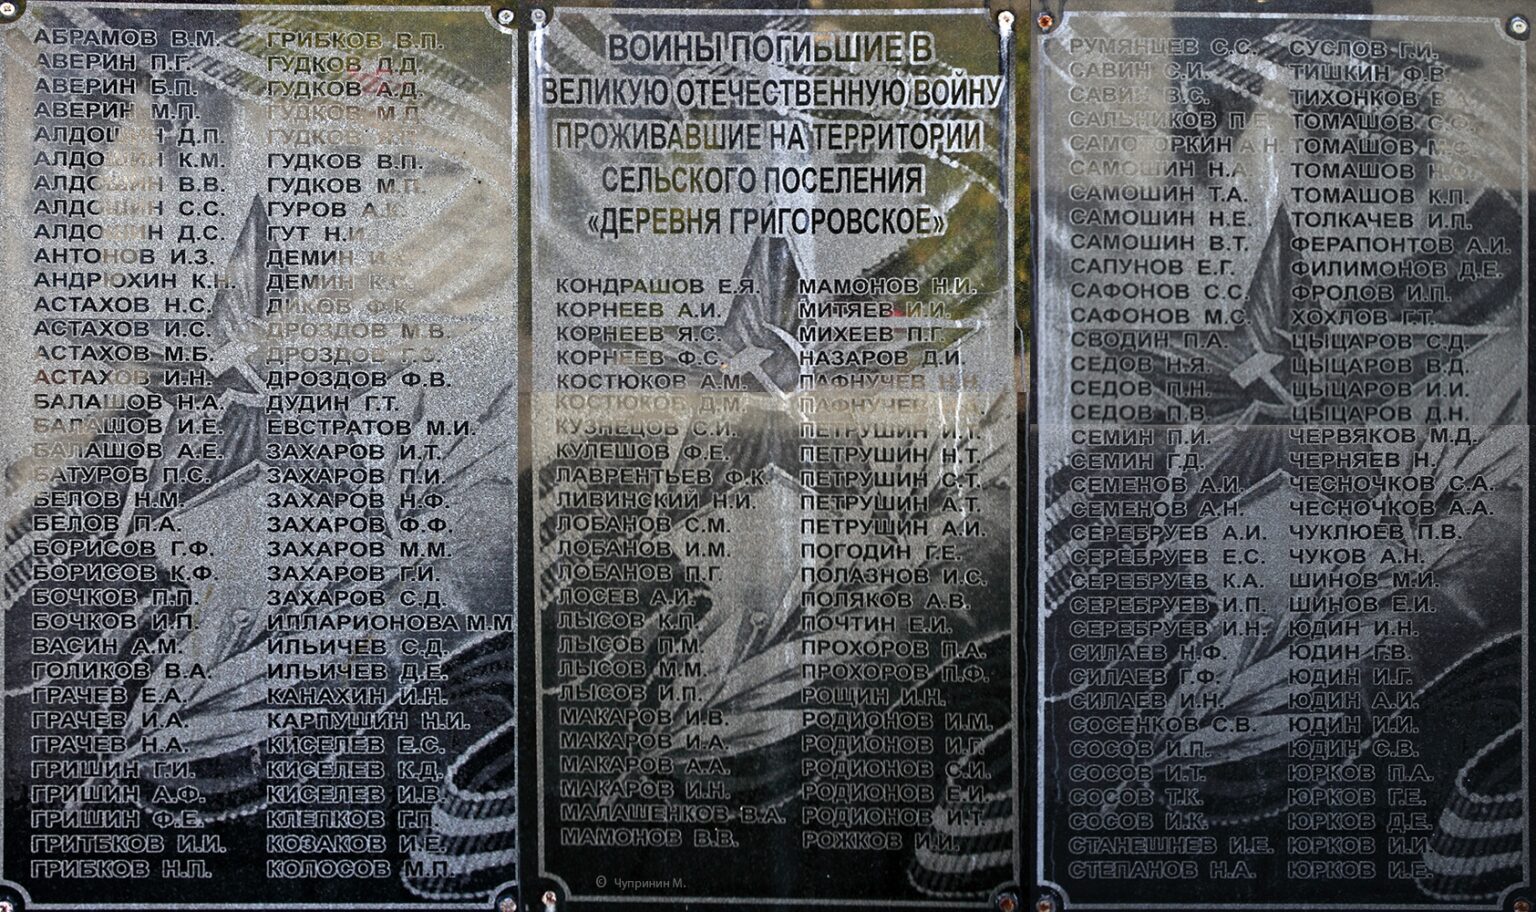 АБРАМОВ В.М.
АВЕРИН П.Г.
АВЕРИН Б.П.
АВЕРИН М.П.
АЛДОШИН Д.П.
АЛДОШИН К.М.
АЛДОШИН В.В.
АЛДОШИН С.С.
АЛДОШИН Д.С.
АНТОНОВ И.З.
АНДРЮХИН К.Н.
АСТАХОВ Н.С.
АСТАХОВ И.С.
АСТАХОВ М.Б.
АСТАХОВ И.Н.
БАЛАШОВ Н.А.
БАЛАШОВ И.Е.
БАЛАШОВ А.Е.
БАТУРОВ П.С.
БЕЛОВ Н.М.
БЕЛОВ П.А.
БОРИСОВ Г.Ф.
БОРИСОВ К.Ф.
БОЧКОВ П.П.
БОЧКОВ И.П.
ВАСИН А.М.
ГОЛИКОВ В.А.
ГРАЧЕВ Е.А.
ГРАЧЕВ И.А.
ГРАЧЕВ Н.А.
ГРИШИН Г.И.
ГРИШИН А.Ф.
ГРИШИН Ф.Е.
ГРИТБКОВ И.И.
ГРИБКОВ Н.П.
ГРИБКОВ В.П.
ГУДКОВ Д.Д.
ГУДКОВ А.Д.
ГУДКОВ М.Д.
ГУДКОВ
ГУДКОВ В.П.
ГУДКОВ М.П.
ГУРОВ А.К.
ГУТ Н.И.
ДЕМИН
ДЕМИН К.Г.
ДИКОВ Ф.К.
ДРОЗДОВ М.В.
ДРОЗДОВ Г.С.
ДРОЗДОВ Ф.В.
ДУДИН Г.Т.
ЕВСТРАТОВ М.И.
ЗАХАРОВ И.Т.
ЗАХАРОВ П.И.
ЗАХАРОВ Н.Ф.
ЗАХАРОВ Ф.Ф.
ЗАХАРОВ М.М.
ЗАХАРОВ Г.И.
ЗАХАРОВ С.Д.
ИПЛАРИОНОВА М.М
ИЛЬИЧЕВ С.Д.
ИЛЬИЧЕВ Д.Е.
КАНАХИН И.Н.
КАРПУШИН Н.И.
КИСЕЛЕВ Е.С.
КИСЕЛЕВ К.Д.
КИСЕЛЕВ И.В.
КЛЕПКОВ Г.П.
КОЗАКОВ И.Е.
КОЛОСОВ М.П.
ВОИНЫ ПОГИБШИЕ В
ВЕЛИКУЮ ОТЕЧЕСТВЕННУЮ ВОЙНУ
ПРОЖИВАВШИЕ НА ТЕРРИТОРИИ
СЕЛЬСКОГО ПОСЕЛЕНИЯ
«ДЕРЕВНЯ ГРИГОРОВСКОЕ»
КОНДРАШОВ Е.Я.
КОРНЕЕВ А.И.
КОРНЕЕВ Я.С.
КОРНЕЕВ Ф.С.
КОСТЮКОВ А.М.
КОСТЮКОВ Д.М.
КУЗНЕЦОВ С.И.
КУЛЕШОВ Ф.Е.
ЛАВРЕНТЬЕВ Ф.К.
ЛИВИНСКИЙ Н.И.
ЛОБАНОВ С.М.
ЛОБАНОВ И.М.
ЛОБАНОВ П.Г.
ЛОСЕВ А.И.
ЛЫСОВ К.П.
ЛЫСОВ П.М.
ЛЫСОВ М.М.
ЛЫСОВ И.П.
МАКАРОВ И.В.
МАКАРОВ И.А.
МАКАРОВ А.А.
МАКАРОВ И.Н.
МАЛАШЕНКОВ В.А.
МАМОНОВ В.В.
МАМОНОВ Н.И.
МИТЯЕВ И.И.
МИХЕЕВ П.Г.
НАЗАРОВ Д.И.
ПАФНУЧЕВ Н.Н.
ПАФНУЧЕВ
ПЕТРУШИН И.Т.
ПЕТРУШИН Н.Т.
ПЕТРУШИН С.Т.
ПЕТРУШИН А.Т.
ПЕТРУШИН А.И.
ПОГОДИН Г.Е.
ПОЛАЗНОВ И.С.
ПОЛЯКОВ А.В.
ПОЧТИН Е.И.
ПРОХОРОВ П.А.
ПРОХОРОВ П.Ф.
РОЩИН И.Н.
РОДИОНОВ И.М.
РОДИОНОВ И.Г.
РОДИОНОВ С.И.
РОДИОНОВ Е.И.
РОДИОНОВ И.Т.
РОЖКОВ И.И.
© Чупринин М.
РУМЯНЦЕВ С.С.
САВИН С.И.
САВИН В.С.
САЛЬНИКОВ П.Е.
САМОТОРКИН А.Н.
САМОШИН Н.А.
САМОШИН Т.А.
САМОШИН Н.Е.
САМОШИН В.Т.
САПУНОВ Е.Г.
САФОНОВ С.С.
САФОНОВ М.С.
СВОДИН П.А.
СЕДОВ Н.Я.
СЕДОВ П.Н.
СЕДОВ П.В.
СЕМИН П.И.
СЕМИН Г.Д.
СЕМЕНОВ А.И.
СЕМЕНОВ А.Н.
СЕРЕБРУЕВ А.И.
СЕРЕБРУЕВ Е.С.
СЕРЕБРУЕВ К.А.
СЕРЕБРУЕВ И.П.
СЕРЕБРУЕВ И.Н.
СИЛАЕВ Н.Ф.
СИЛАЕВ Г.Ф.
СИЛАЕВ И.Н.
СОСЕНКОВ С.В.
СОСОВ И.П.
СОСОВ И.Т.
СОСОВ Т.К.
СОСОВ И.К.
СТАНЕШНЕВ И.Е.
СТЕПАНОВ Н.А.
СУСЛОВ Г.И.
ТИШКИН Ф.В.
ТИХОНКОВ В.А.
ТОМАШОВ С.Ф.
ТОМАШОВ М.Ф.
ТОМАШОВ Н.Ф.
ТОМАШОВ К.П.
ТОЛКАЧЕВ И.П.
ФЕРАПОНТОВ А.И.
ФИЛИМОНОВ Д.Е.
ФРОЛОВ И.П.
ХОХЛОВ Г.Т.
ЦЫЦАРОВ С.Д.
ЦЫЦАРОВ В.Д.
ЦЫЦАРОВ И.И.
ЦЫЦАРОВ Д.Н.
ЧЕРВЯКОВ М.Д.
ЧЕРНЯЕВ Н.
ЧЕСНОЧКОВ С.А.
ЧЕСНОЧКОВ А.А.
ЧУКЛЮЕВ П.В.
ЧУКОВ А.Н.
ШИНОВ М.И.
ШИНОВ Е.И.
ЮДИН И.Н.
ЮДИН Г.В.
ЮДИН И.Г.
ЮДИН А.И.
ЮДИН И.И.
ЮДИН С.В.
ЮРКОВ П.А.
ЮРКОВ Г.Е.
ЮРКОВ Д.Е.
ЮРКОВ И.И.
ЮРКОВ И.Е.